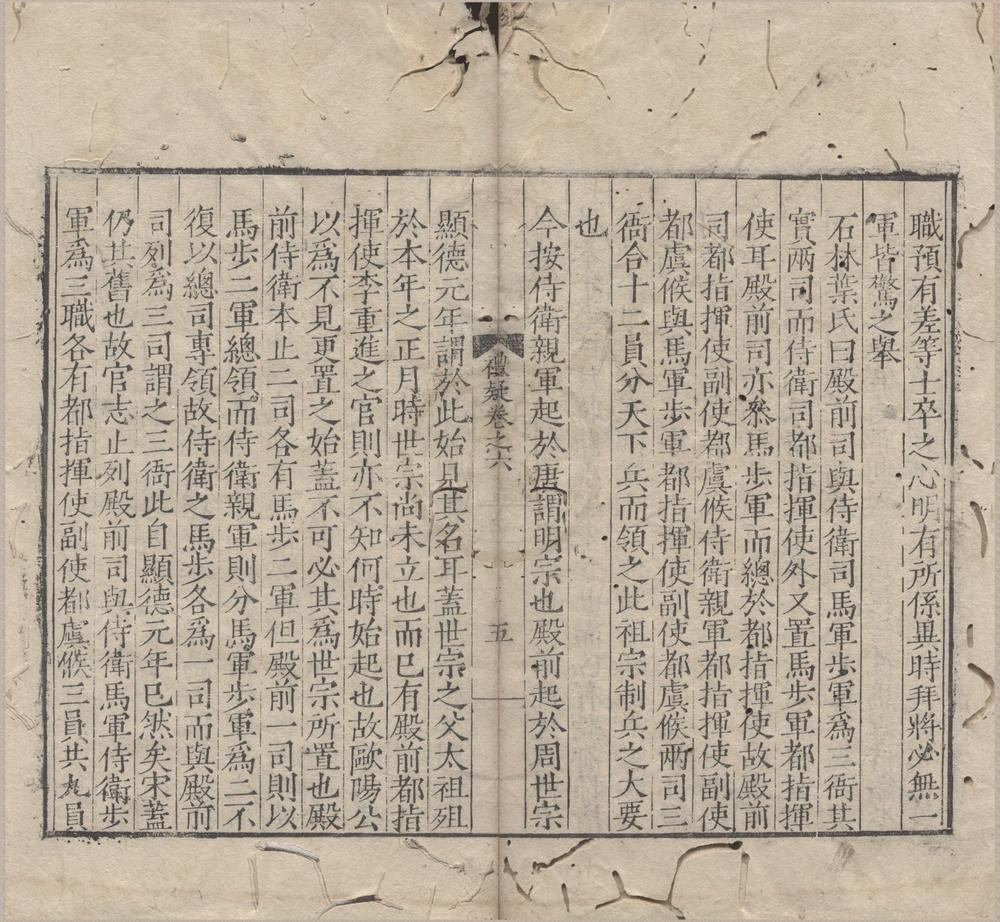 職預有差等士卒之心明有所係異時拜將必無一
軍皆驚之舉
石林葉氏曰殿前司與侍衛司馬軍步軍為三衙其
實兩司而侍衛司都指揮使外又置馬步軍都指揮
使耳殿前司亦叅馬步軍而總於都指揮使故殿前
司都指揮使副使都虞候侍衛親軍都指揮使副使
都虞候與馬軍步軍都指揮使副使都虞候兩司三
衙合十二員分天下兵而領之此祖宗制兵之大要
也
今按侍衛親軍起於唐謂明宗也殿前起於周世宗
禮疑卷之六
五
顯德元年謂於此始見其名耳蓋世宗之父太祖殂
於本年之正月時世宗尚未立也而已有殿前都指
揮使李重進之官則亦不知何時始起也故歐陽公
以為不見更置之始蓋不可必其為世宗所置也殿
前侍衛本止二司各有馬步二軍但殿前一司則以
馬步二軍總領而侍衛親軍則分馬軍步軍為二不
復以總司專領故侍衛之馬步各為一司而與殿前
司列為三司謂之三衙此自顯德元年已然矣宋蓋
仍其舊也故官志止列殿前司與侍衛馬軍侍衛步
軍為三職各有都指揮使副使都虞候三員共九員